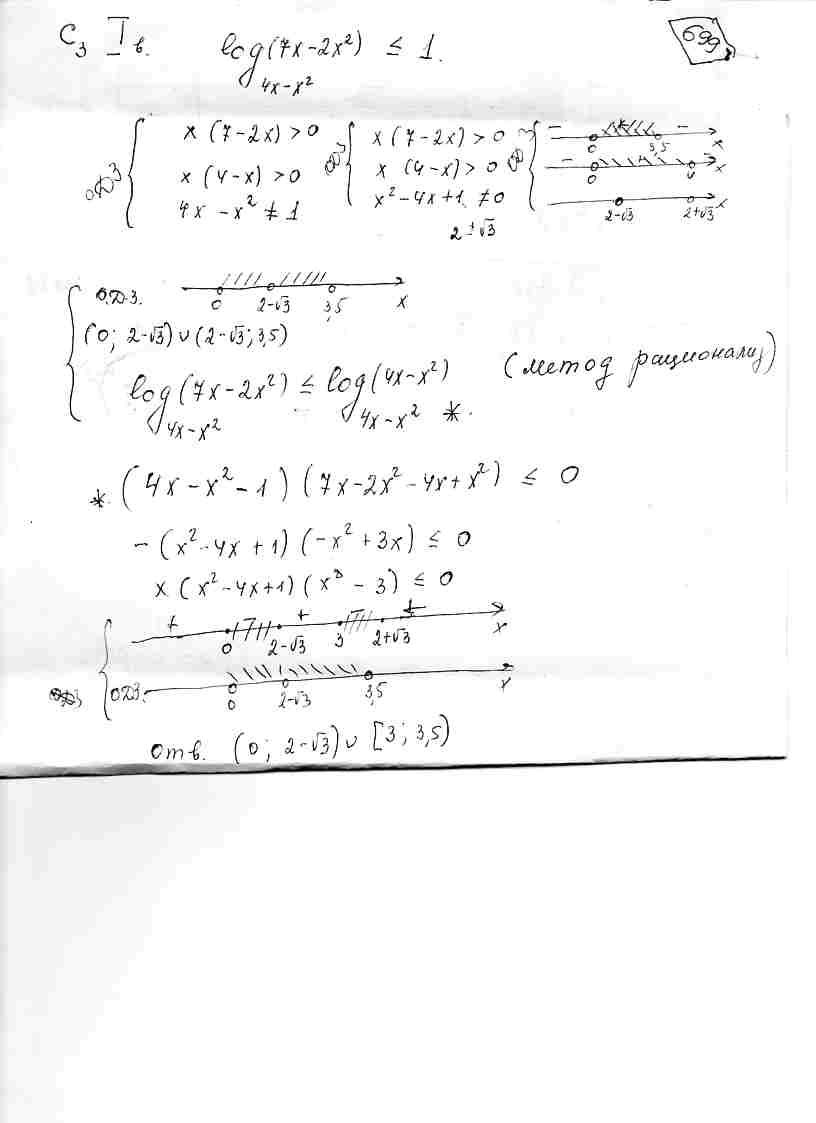 C₃ I в. log₄ₓ₋ₓ²(7x-2x²) ≤ 1. 699
ОДЗ { x(7-2x) > 0 { x(7-2x) > 0 { - + - 0 3,5 x
x(4-x) > 0 x(4-x) > 0 - + - 0 4 x
4x-x² ≠ 1 x²-4x+1 ≠ 0 2-√3 2+√3 x
2±√3
{ О.Д.З. 0 2-√3 3,5 x
(0; 2-√3) ∪ (2-√3; 3,5)
log₄ₓ₋ₓ²(7x-2x²) ≤ log₄ₓ₋ₓ²(4x-x²) *. (метод рационализ)
*. (4x-x²-1)(7x-2x²-4x+x²) ≤ 0
-(x²-4x+1)(-x²+3x) ≤ 0
x(x²-4x+1)(x-3) ≤ 0
{ + - + - + 0 2-√3 3 2+√3 x
ОДЗ. 0 2-√3 3,5 x
Отв. (0; 2-√3) ∪ [3; 3,5)